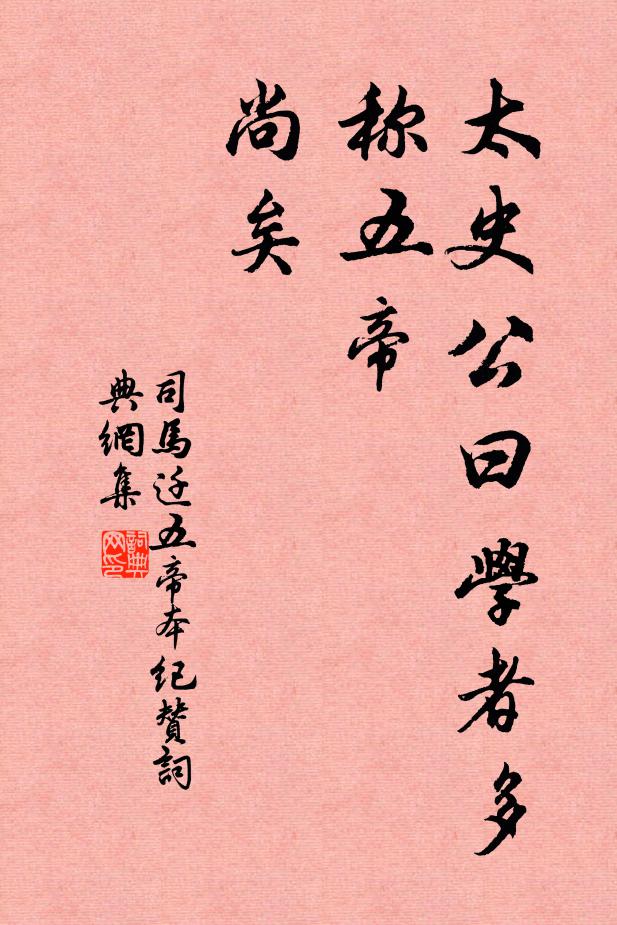 太史公曰學者多
称五帝
尚矣
司馬迁五帝本紀賛詞
典網集
詞典
网印